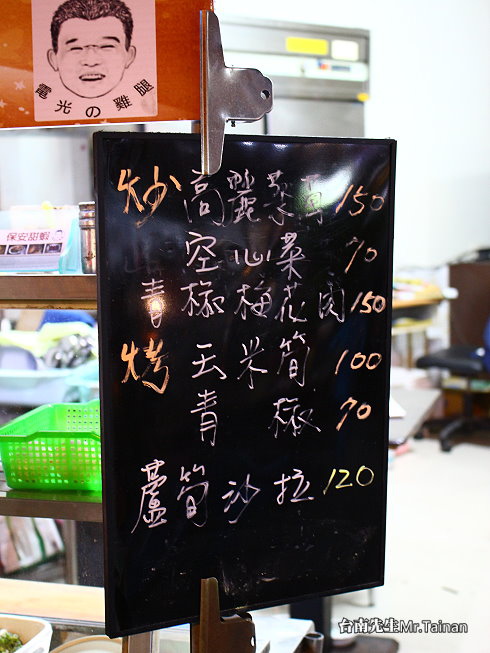 電光の雞腿
保安甜蝦
炒 高麗菜 150
空心菜 70
青椒梅花肉 150
烤 玉米筍 100
青椒 70
蘆筍沙拉 120
台南先生Mr.Tainan